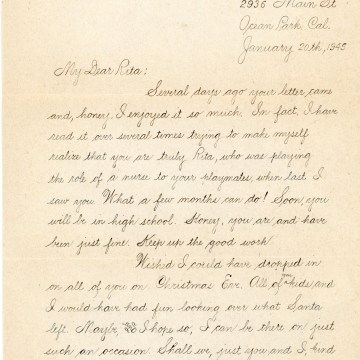 2936 Main St
Ocean Park Cal.
January 20th, 1945
My Dear Rita:
Several days ago your letter came
and, honey, I enjoyed it so much. In fact, I have
read it over several times trying to make myself
realize that you are truly Rita, who was playing
the role of a nurse to your playmates, when last I
saw you. What a few months can do! Soon, you
will be in high school. Honey, you are, and have
been just fine. Keep up the good work.
Wished I could have dropped in
on all of you on Christmas Eve. All of you kids and
I would have had fun looking over what Santa
left. Maybe I hope so, I can be there on just
such an occasion. Shall we, just you and I, kind